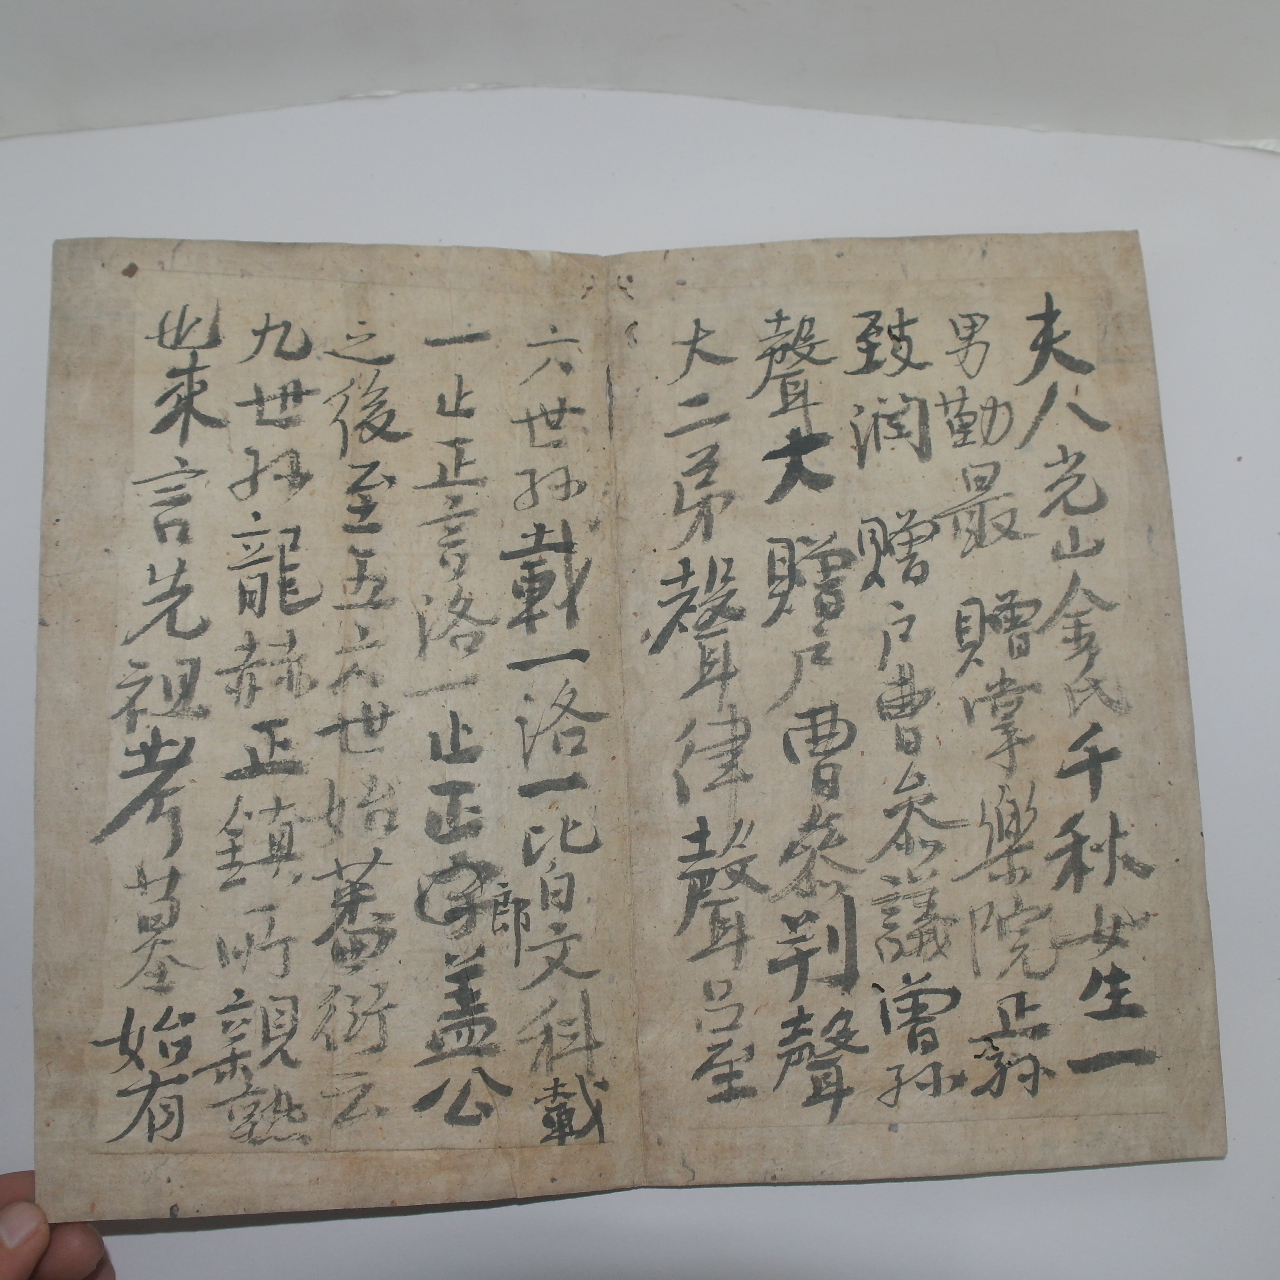 夫人光山金氏千秋女生一
男勤最 贈掌樂院正孫
致潤 贈戶曹參議曾孫
聲大 贈戶曹參判聲
大二弟聲律聲呂至
六世孫載一洛一皆文科載
一止正言洛一止正郎盖公
之後至五六世始蕃衍云
九世孫龍赫正鎮所親熟
也來言先祖考墓始有